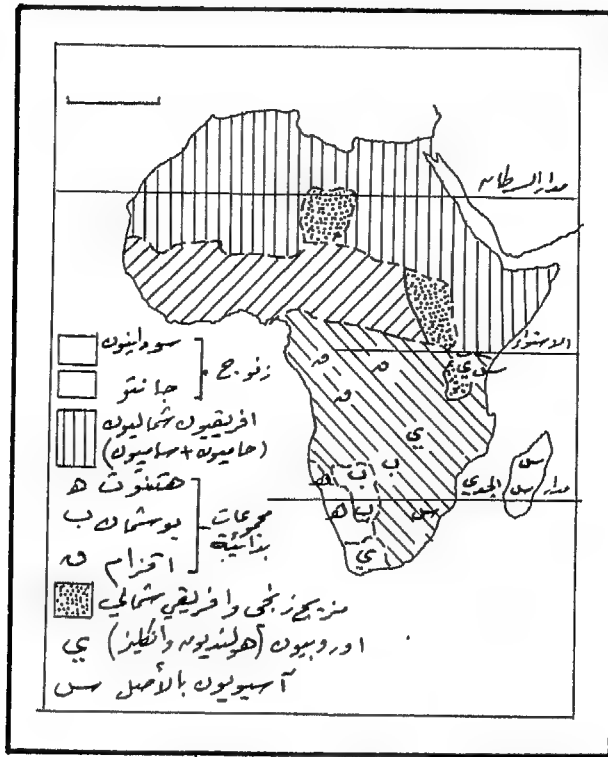 مدار السرطان
الاستواء
س ي س
ق ق
ق
ي
ب ب
ب
ه ه
س
ي
س
س
مدار الجدي
سودانيون
بانتو
زنوج
افريقيون شماليون
(حاميون + ساميون)
هتنوت ه
بوشمان ب
اقزام ق
مجموعات
بدائية
مزيج زنجي وافريقي شمالي
اوروبيون (هولنديون وانكليز) ي
آسيويون بالأصل س